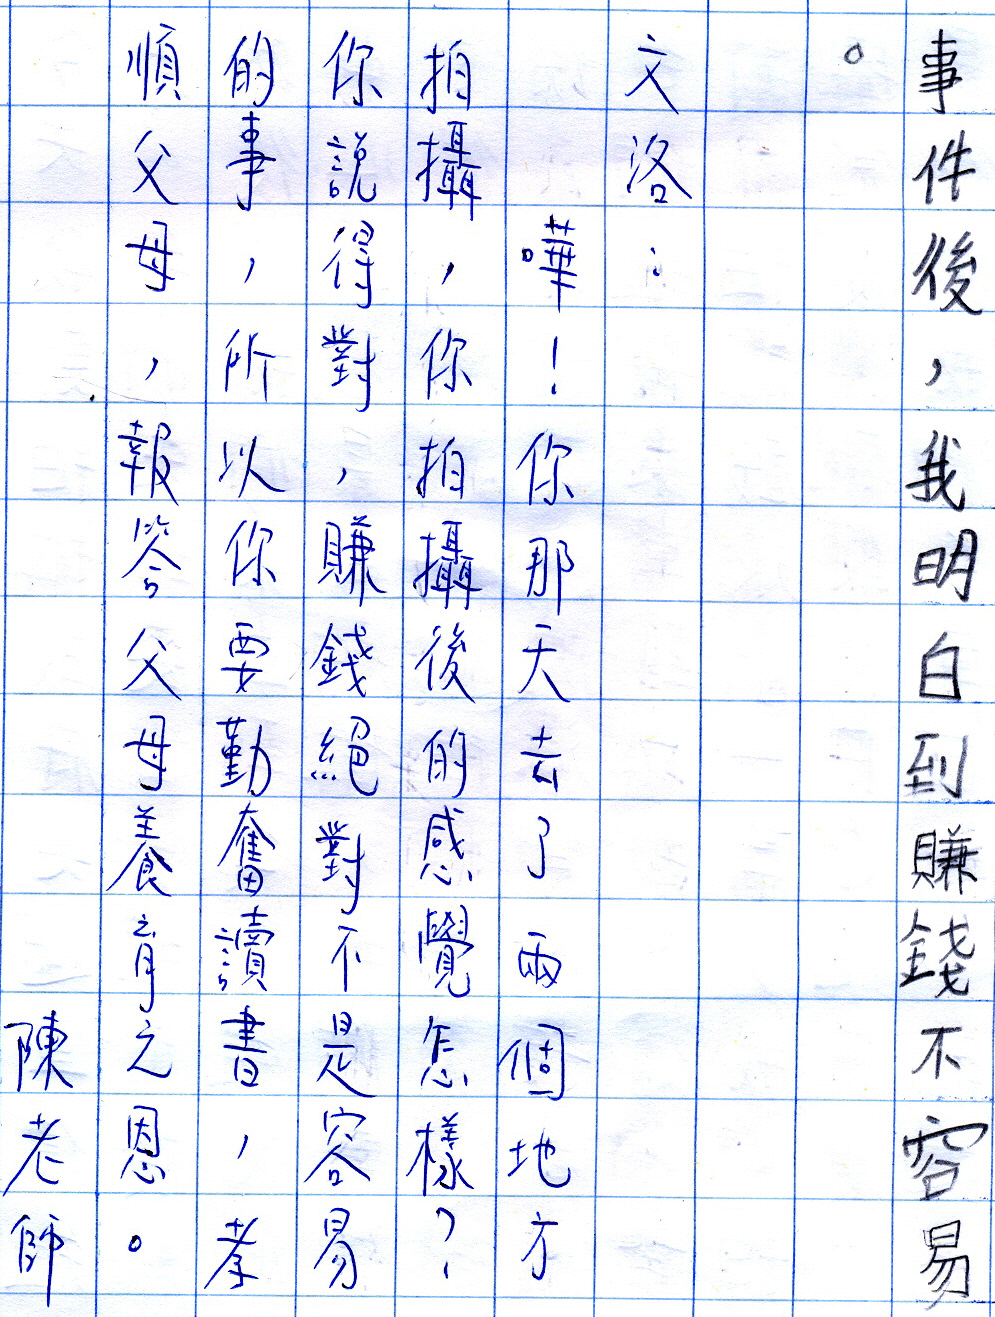 事件後，我明白到賺錢不容易
。
文洛：
嘩！你那天去了兩個地方
拍攝，你拍攝後的感覺怎樣？
你說得對，賺錢絕對不是容易
的事，所以你要勤奮讀書，孝
順父母，報答父母養育之恩。
陳老師